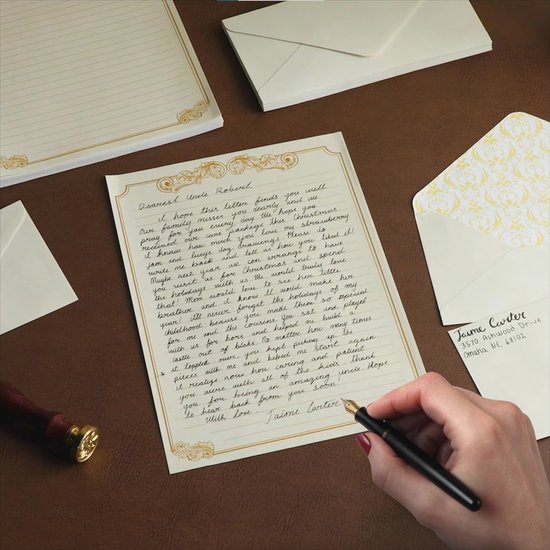 Dearest Uncle Robert,
I hope this letter finds you well.
Our family misses you dearly and we
pray for you every day. We hope you
received our care package this Christmas
I know how much you love my strawberry
jam and lucys dog drawings. Please do
write me back and tell us how you liked it!
Maybe next year we can arrange to have
you visit us for Christmas and spend
the holidays with us. We would truly love
that! Mom would love to see her little
brother and I know it would make her
year! I'll never forget the holidays of my
childhood because you made them so special
for me and the cousins. You sat and played
with us for hours and helped me build a
castle out of blocks. No matter how many times
it toppled over, you kept picking up the
pieces with me and helped me start again
I realize now how caring and patient
you were with all of the kids. Thank
you for being an amazing uncle. Hope
to hear back from you soon!
With love
Jaime Carter
Jaime Carter
3570 Ashwood Drive
Omaha NE, 68102